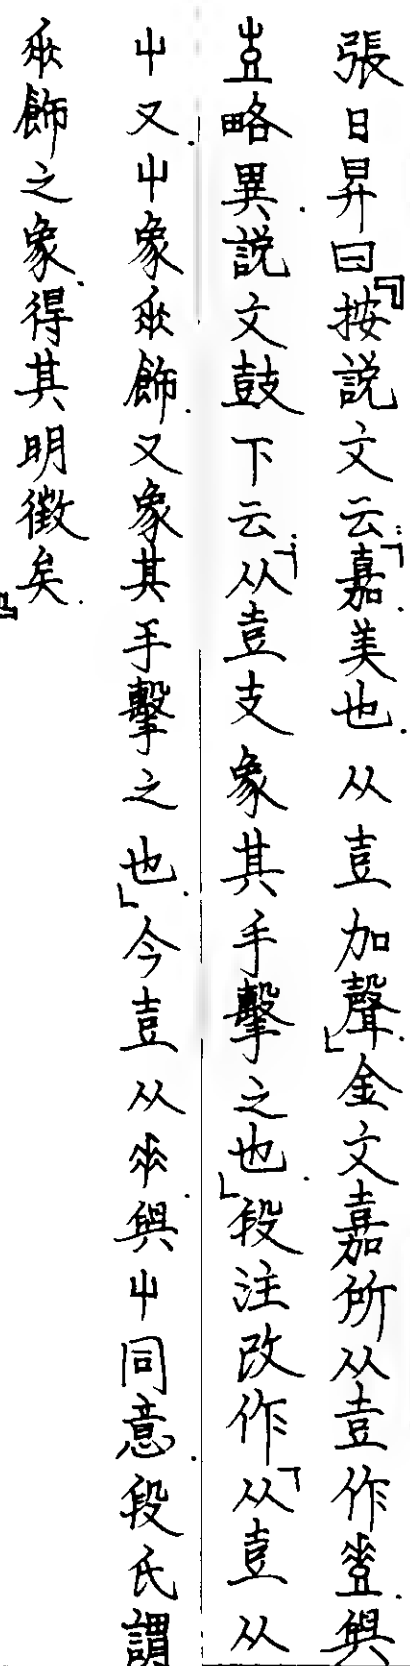 張日昇曰『按説文云：「嘉，美也。从壴加聲。」金文嘉所从壴作𡔷，與
壴略異，説文鼓下云：「从壴支，象其手擊之也。」段注改作「从壴，从
屮又，屮象𠂹飾，又象其手擊之也。」今壴从𠦒，與屮同意，段氏謂
𠂹飾之象，得其明徵矣。』